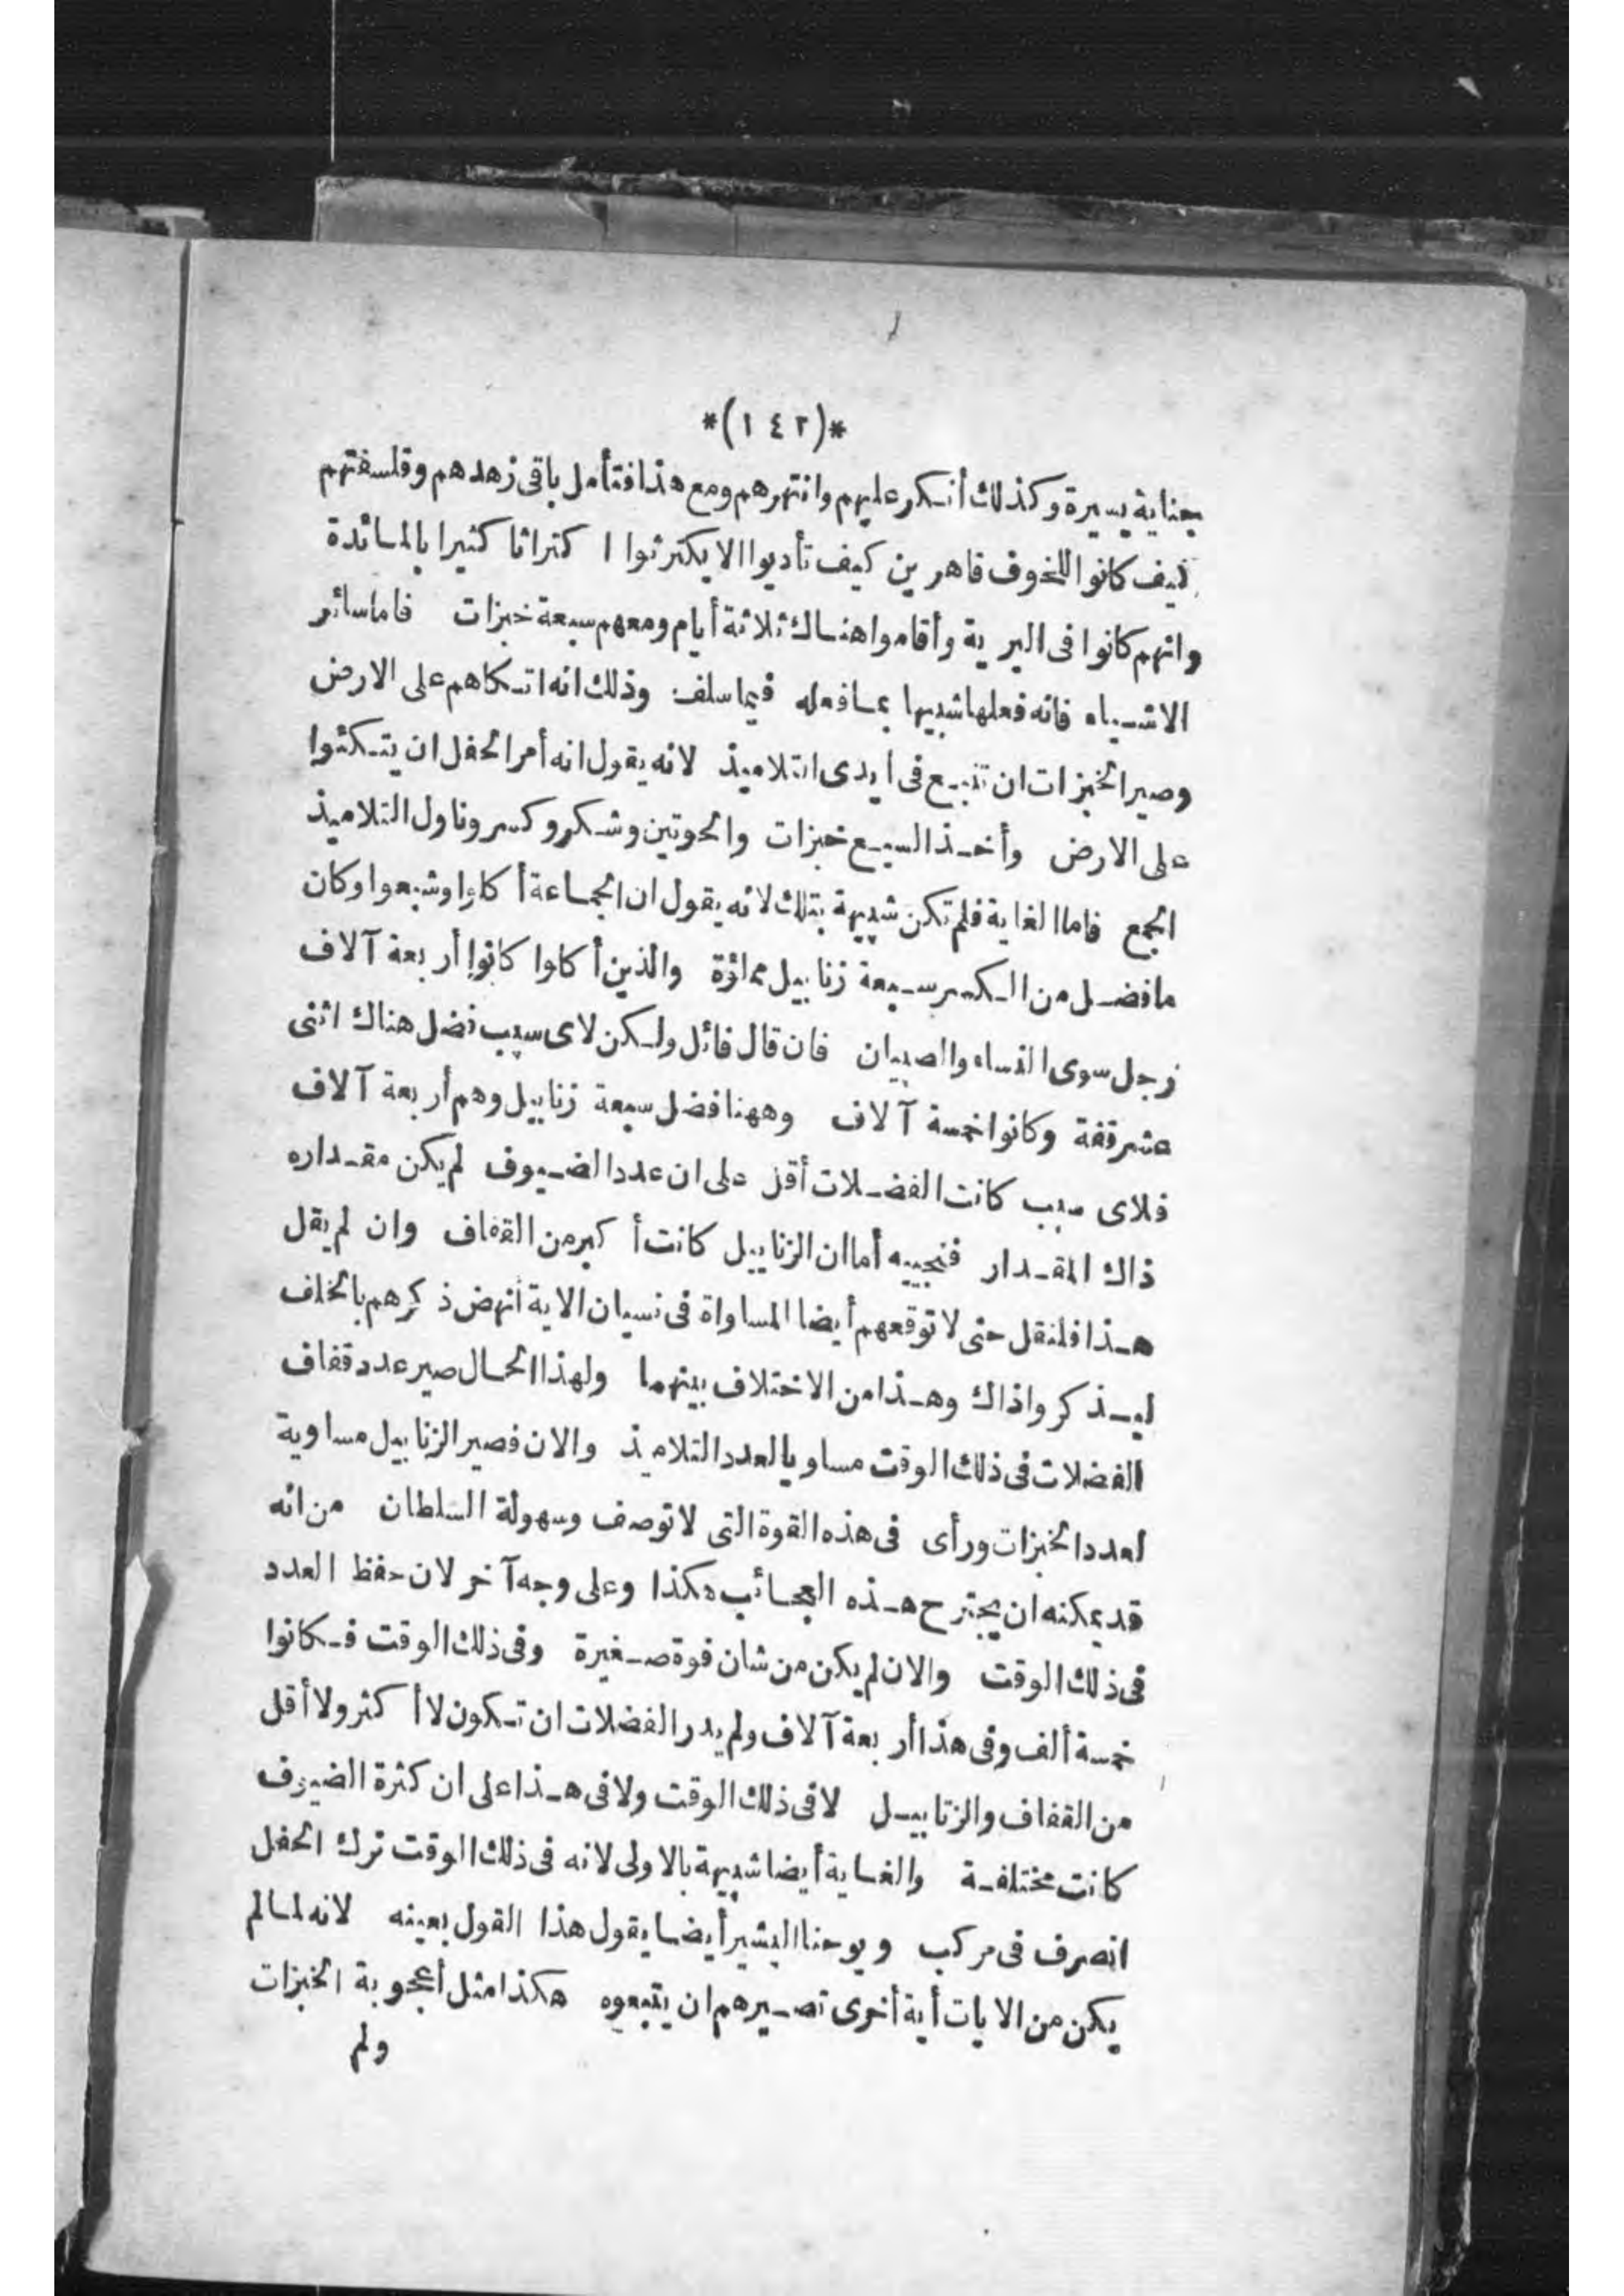 *(١٤٢)*
بعناية يسيرة وكذلك أنكر عليهم وانتهرهم ومع هذا فتأمل باقى زهدهم وفلسفتهم
كيف كانوا للخوف قاهرين كيف تأدبوا الا يكترثوا اكتراثا كثيرا بالمائدة
وانهم كانوا فى البرية وأقاموا هناك ثلاثة أيام ومعهم سبعة خبزات فاما سائر
الاشياء فانه فعلها شبيها بما فعله فيما سلف وذلك انه اتكاهم على الارض
وصير الخبزات ان تنبع فى أيدى التلاميذ لانه يقول انه أمر الحفل ان يتكئوا
على الارض وأخذ السبع خبزات والحوتين وشكر وكسر وناول التلاميذ
الجمع فاما الغاية فلم تكن شبيهة بتلك لانه يقول ان الجماعة أكلوا وشبعوا وكان
ما فضل من الكسر سبعة زنابيل مملؤة والذين أكلوا كانوا أربعة آلاف
رجل سوى النساء والصبيان فان قال قائل ولكن لاى سبب فضل هناك اثنى
عشر قفة وكانوا خمسة آلاف وههنا فضل سبعة زنابيل وهم أربعة آلاف
فلاى سبب كانت الفضلات أقل على ان عدد الضيوف لم يكن مقداره
ذاك المقدار فنجيبه أما ان الزنابيل كانت أكبر من القفاف وان لم يقل
هذا فلنقل حتى لا توقعهم أيضا المساواة فى نسيان الاية أنهض ذكرهم بالخلف
ليذكروا ذاك وهذا من الاختلاف بينهما ولهذا الحال صير عدد قفاف
الفضلات فى ذلك الوقت مساويا لعدد التلاميذ والان فصير الزنابيل مساوية
لعدد الخبزات ورأى فى هذه القوة التى لا توصف وسهولة السلطان من انه
قد يمكنه ان يجترح هذه العجائب هكذا وعلى وجه آخر لان حفظ العدد
فى ذلك الوقت والان لم يكن من شان قوة صغيرة وفى ذلك الوقت فكانوا
خمسة ألف وفى هذا أربعة آلاف ولم يدر الفضلات ان تكون لا أكثر ولا أقل
من القفاف والزنابيل لا فى ذلك الوقت ولا فى هذا على ان كثرة الضيوف
كانت مختلفة والغاية أيضا شبيهة بالاولى لانه فى ذلك الوقت ترك الحفل
انصرف فى مركب ويوحنا البشير أيضا يقول هذا القول بعينه لانه لما لم
يكن من الايات أية أخرى تصيرهم ان يتبعوه هكذا مثل أعجوبة الخبزات
ولم